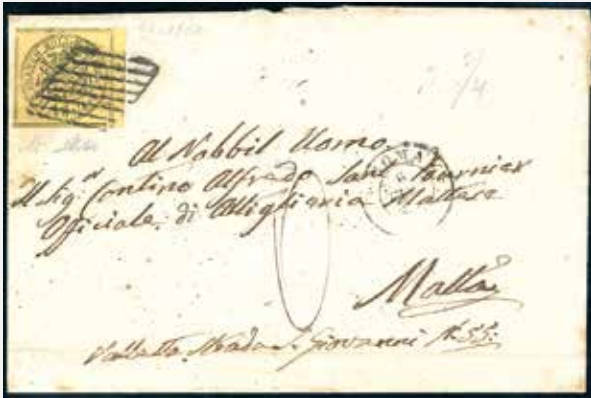 ROMA
Al Nobbil Uomo
Il Sig.r Contino Alfredo Sant Fournier
Officiale di Artiglieria Maltese
Malta
Valletta Strada S. Giovanni N. 55.